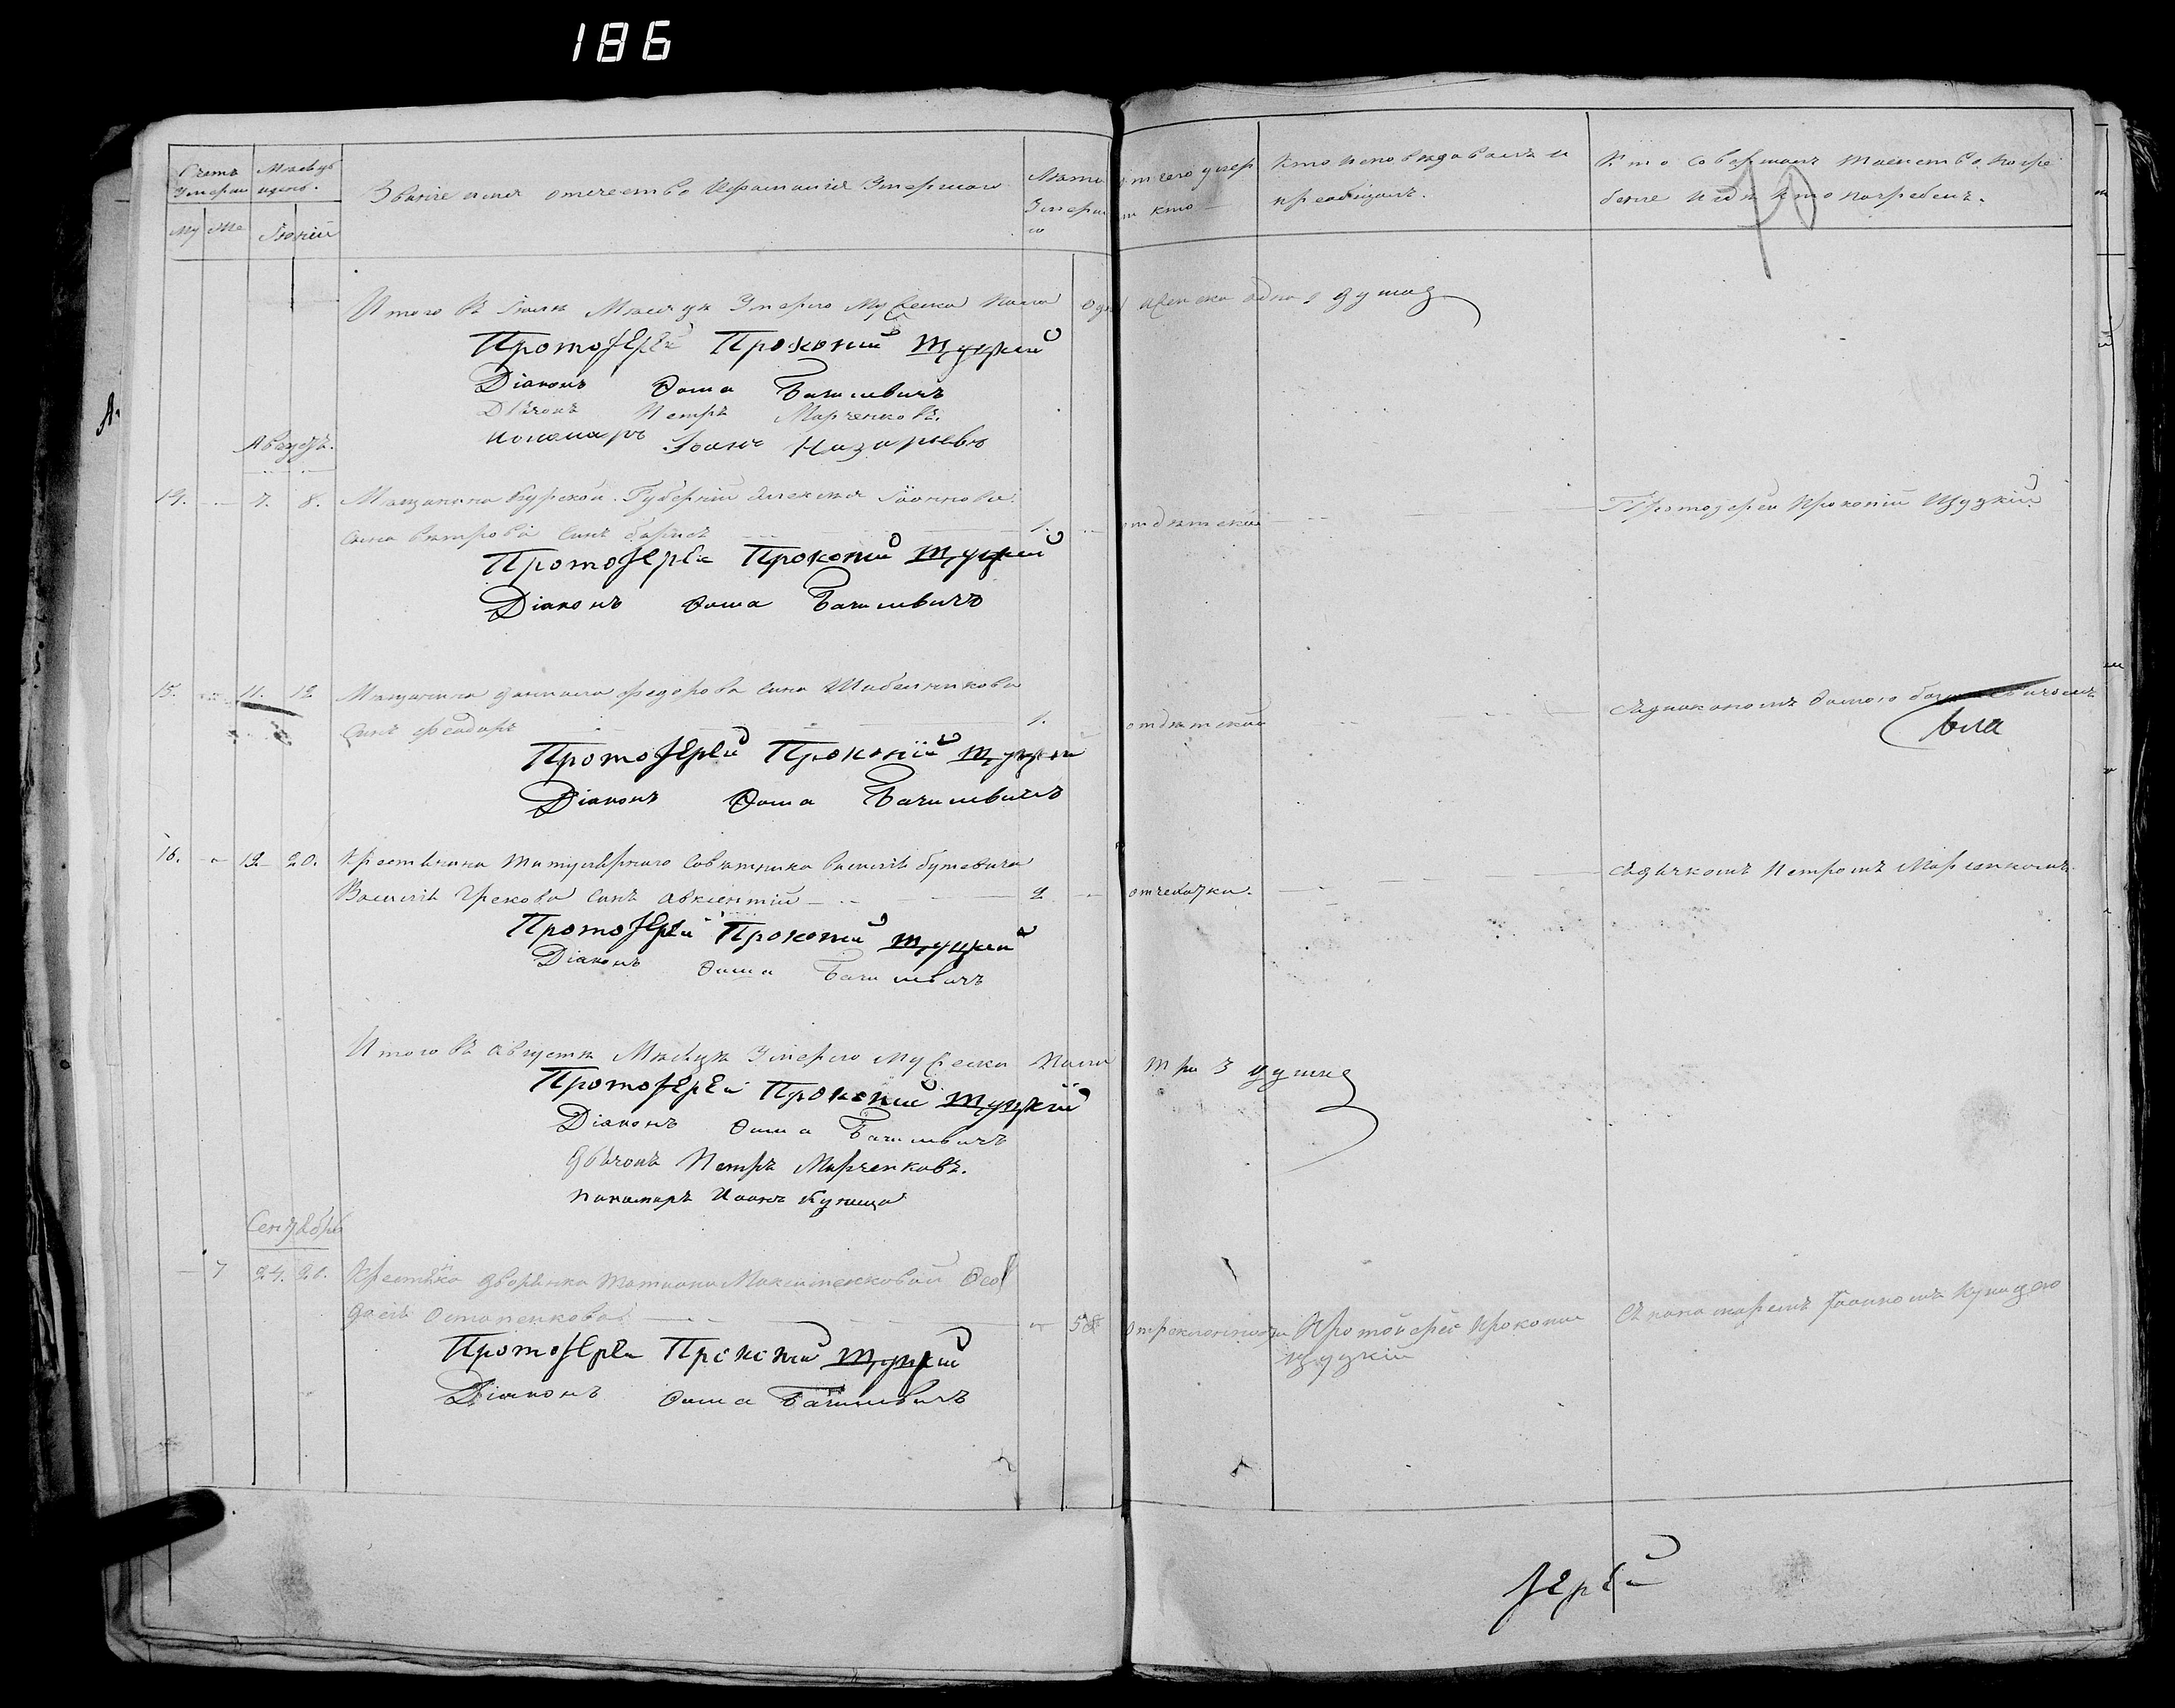 186
Счетъ Умерши
Месяцъ и день.
Званіе имя отечество и фамилія Умершаго
Лета Умерш
отчего умер
и кто
Кто исповедовалъ и
пріобщалъ.
Кто совершалъ таинство погре
беніе и где кто погребенъ.
Му Же Іюлій
Итого въ Іюле Месяце Умерло Му Ческа пола один Женска одна 1 душа
Протоіерей Прокопій Щуцкій
Діаконъ Фома Базилевичъ
Дьячокъ Петръ Марченковъ.
Пономаръ Іоанъ Назарьевъ
Августъ.
14. 7. 8. Мещанина Курской Губерніи Алексея Іоаннова
сына Ветрова сынъ Борисъ 1. отдетской Протоіерей Прокопій Щуцкій
Протоіерей Прокопій Щуцкій
Діаконъ Фома Базилевичъ
15. 11. 12 Мещанина Даниила Федорова сына Шабельникова
сынъ Феодоръ 1. отдетской
Сдиакономъ Фомою
Протоіерей Прокопій Щуцкій
Діаконъ Фома Базилевичъ
16. 19 20. Крестянина титулярнаго Советника Василія Бутовича
Василія Грекова сынъ Авксентій 2 отчехотки. Сдячкомъ Петромъ Марченкомъ.
Протоіерей Прокопій Щуцкій
Діаконъ Фома Базилевичъ
Итого въ Августе Месяце Умерло Му Ческа Пола Три 3 души
Протоіерей Прокопій Щуцкій
Діаконъ Фома Базилевичъ
Дьячокъ Петръ Марченковъ.
Пономаръ Иоанъ Куница
Сентябрь
7 24. 26. Крестянка дворянки Татианы Максименковой Фео
досія Остапенкова 58
Протоіерей Прокопій
Щуцкій
Спономаремъ Іоанномъ Куницею
Протоіерей Прокопій Щуцкій
Діаконъ Фома Базилевичъ
Іерей